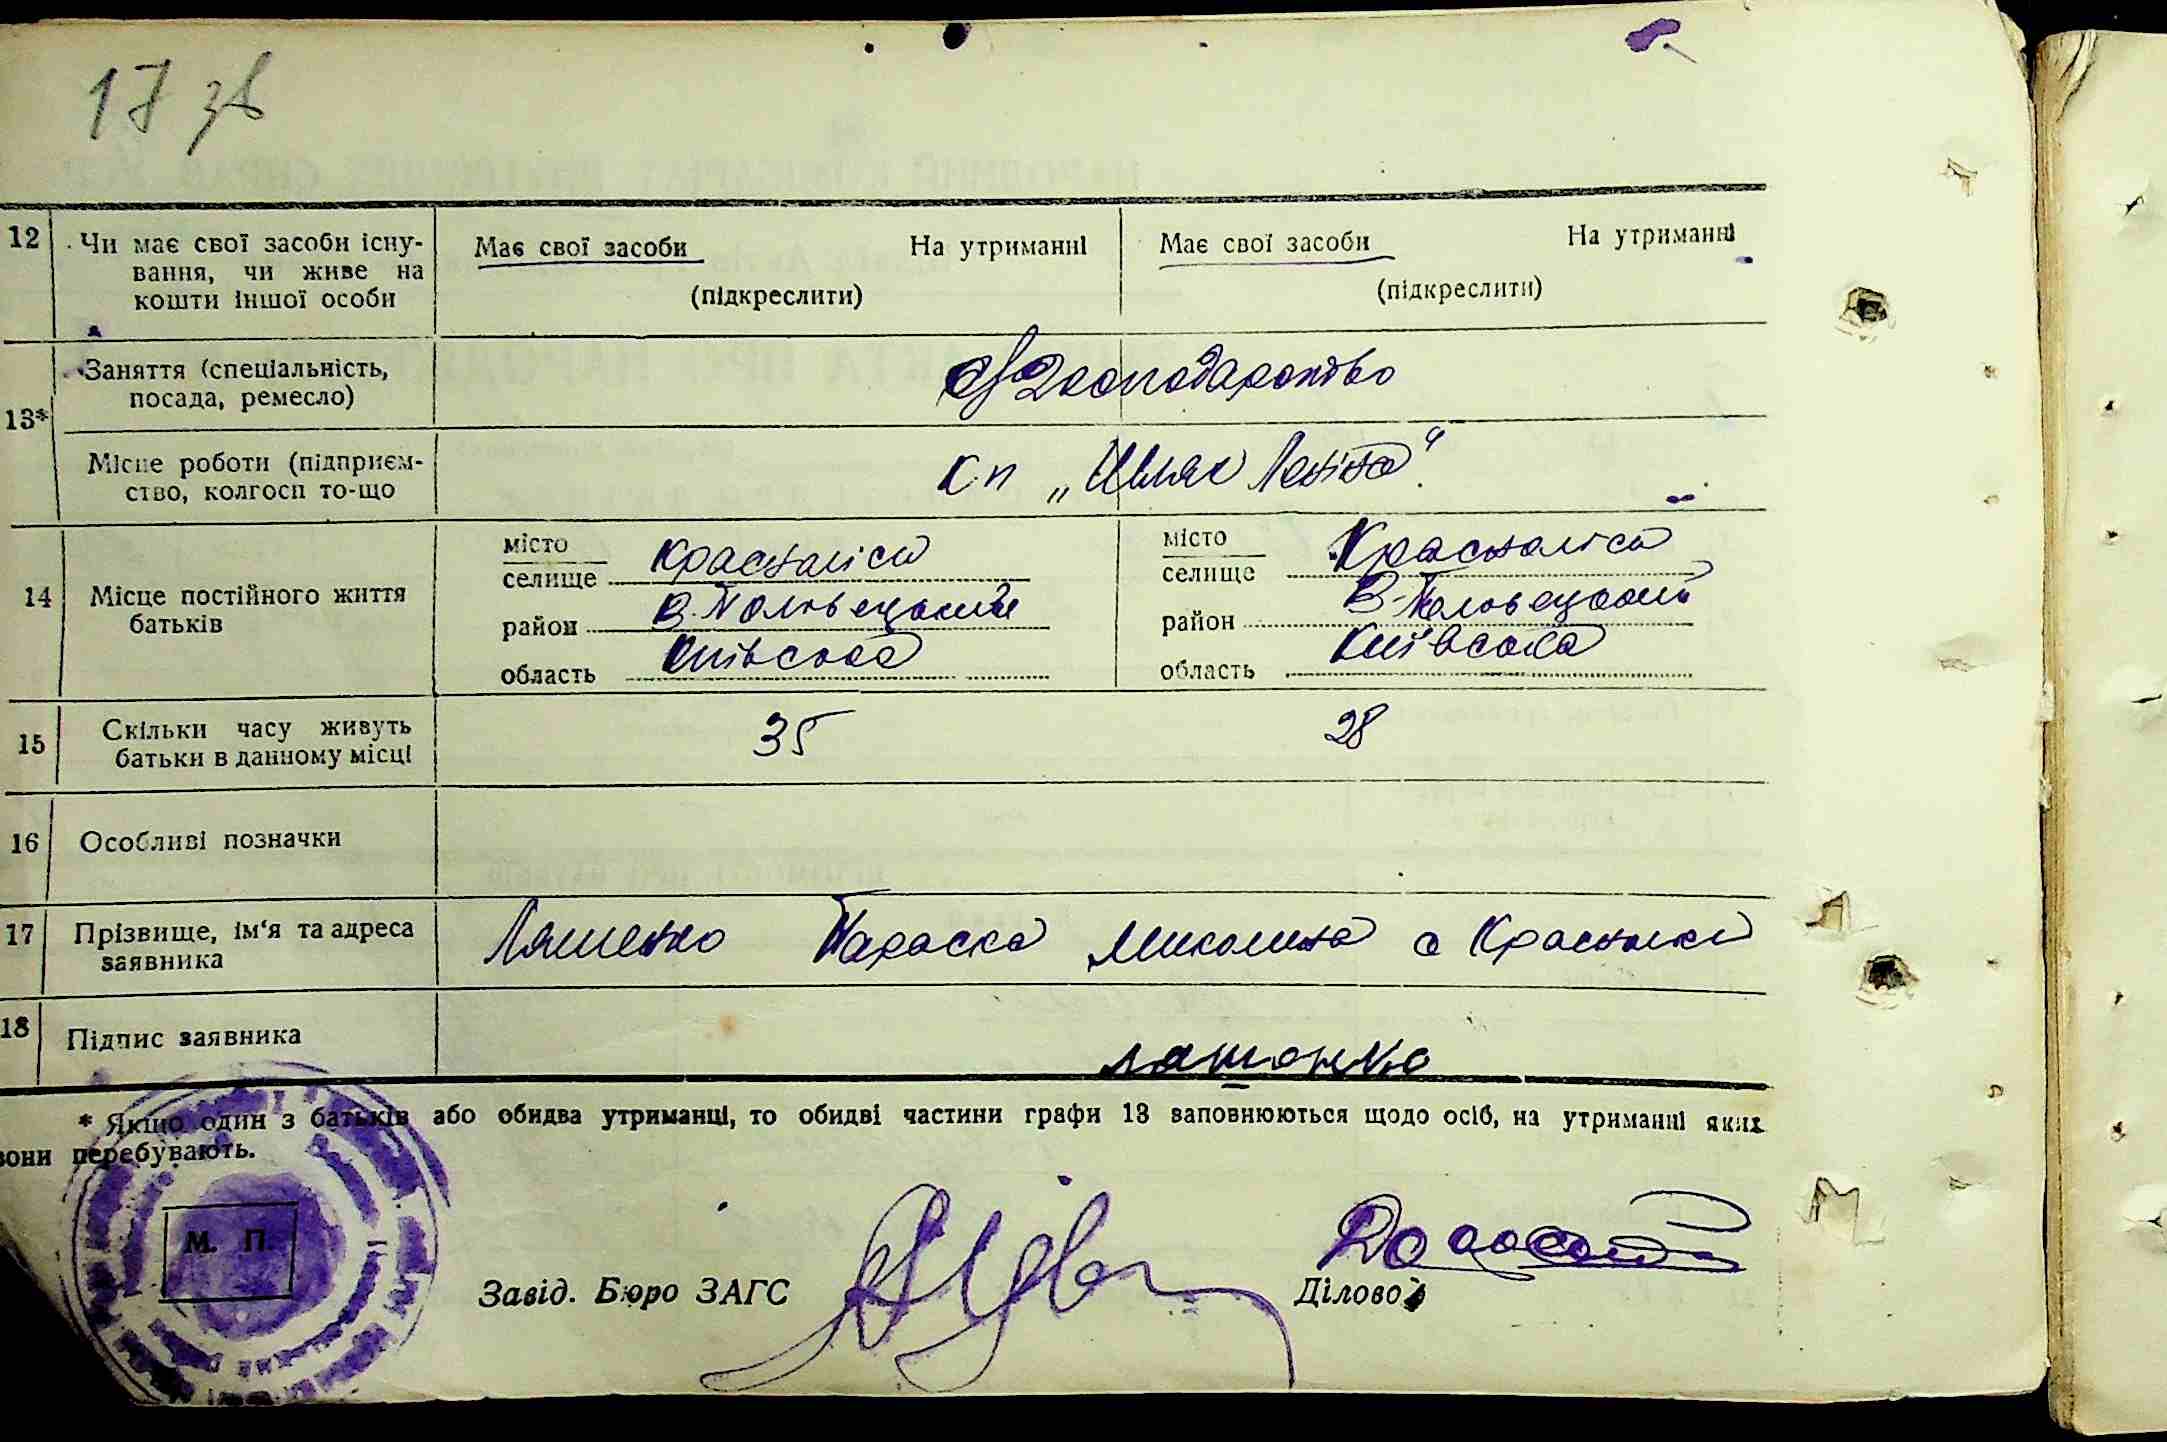 17 зв
12 Чи має свої засоби існу-
вання, чи живе на
кошти іншої особи
Має свої засоби На утриманні
(підкреслити)
Має свої засоби На утриманні
(підкреслити)
13*
Заняття (спеціальність,
посада, ремесло)
с/господарство
Місце роботи (підприєм-
ство, колгосп то-що
к.п "Шлях Леніна".
14 Місце постійного життя
батьків
місто
селище Красноліси
район В.-Половецький
область Київська
місто
селище Красноліси
район В-Половецький
область Київська
15 Скільки часу живуть
батьки в данному місці
35 28
16 Особливі позначки
17 Прізвище, ім'я та адреса
заявника
Ляшенко Параска Миколина с Красноліси
18 Підпис заявника
ляшонко
* Якщо один з батьків або обидва утриманці, то обидві частини графи 13 заповнюються щодо осіб, на утриманні яких
вони перебувають.
М. П.
Завід. Бюро ЗАГС
Діловод